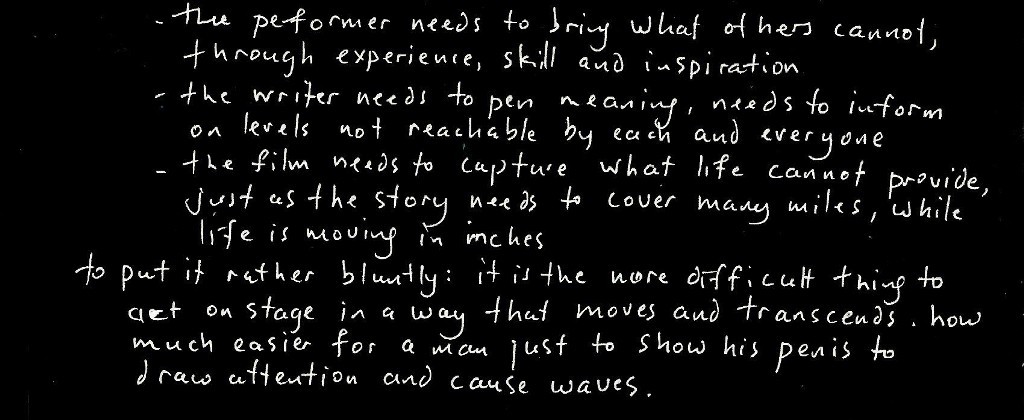 - the performer needs to bring what others cannot,
through experience, skill and inspiration
- the writer needs to pen meaning, needs to inform
on levels not reachable by each and everyone
- the film needs to capture what life cannot provide,
just as the story needs to cover many miles, while
life is moving in inches
to put it rather bluntly: it is the more difficult thing to
act on stage in a way that moves and transcends. how
much easier for a man just to show his penis to
draw attention and cause waves.